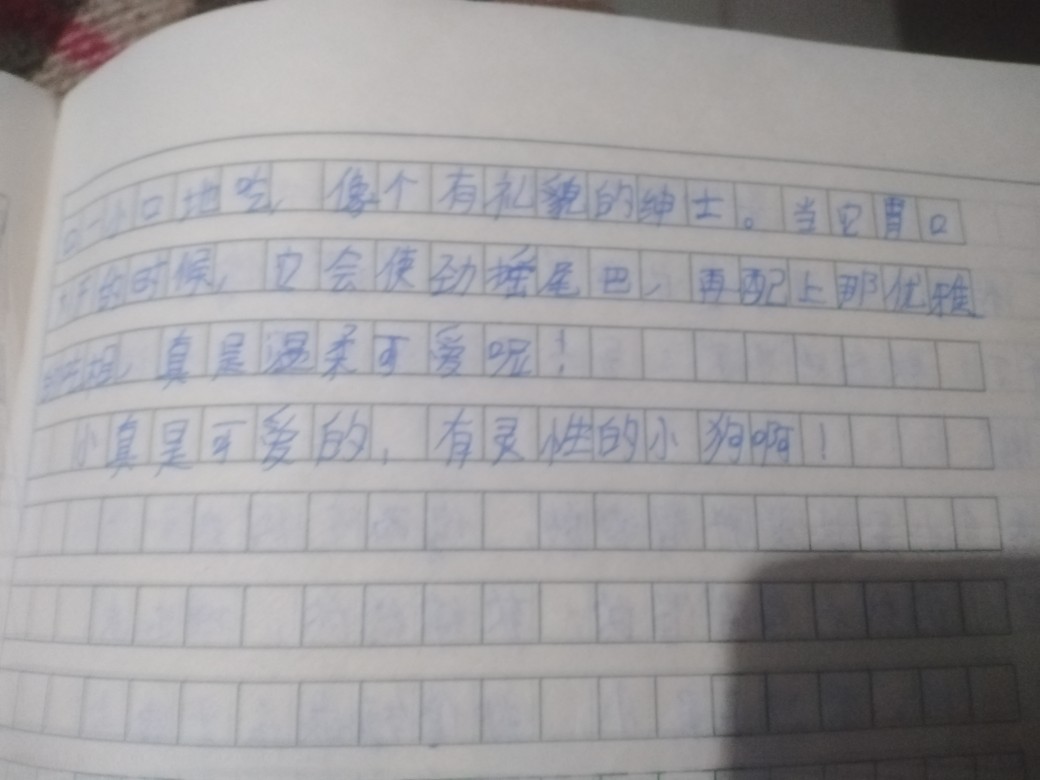 口一小口地吃,像个有礼貌的绅士。当它胃口
大开的时候,它会使劲摇尾巴,再配上那优雅
的吃相,真是温柔可爱呢!
小真是可爱的,有灵性的小狗啊!